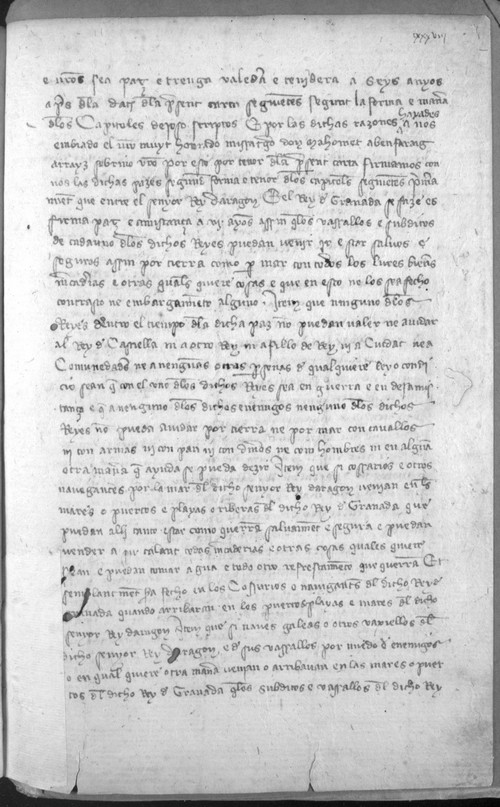 xxxviij
e uros sea paz e treuga valedera e tenidera a seys anyos
a ps dla dat dla psent carta seguientes segunt la forma e manera
dlos Capitoles dejoso scriptos E por las dichas razones havades a nos
enbiado el uro muyt honrado missatgo don Mahomet abenfarag
arrayz sobrino uro por esto por tenor dla psent carta firmamos con
vos las dichas pazes segund forma e tenor dlos capitols seguientes prima
ment que entre el senyor Rey daragon E el Rey d Granada se faze es
firma paz e amistança a vj ayos assin qlos vassallos e subditos
de cadauno dlos dichos Reyes puedan venir ir e star salvos e
seguros assin por tierra como p mar con todos los lures bienes
mcadias e otras quals quiere cosas e que en esto no los sea fecho
contrasto ne embargamiento alguno · Item que ninguno dlos
Reyes dentro el tiempo dla dicha paz no puedan valer ne aiudar
al Rey d Castiella ni a otro Rey ni a fillo de Rey ni a Ciudat ne a
Comunidades ne a nenguas otras psonas d qualquiere ley o condi
cio sean q con el uno dlos dichos Reyes sea en guerra e en desamis
tança e q a nenguno dlos dichos enemigos nenguno dlos dichos
Reyes no pueda aiudar por tierra ne por mar con cavallos
ni con armas ni con pan ni con dineros ne con hombres ni en algua
otra mana q ayuda se pueda dezir Item que si cossarios e otros
navegantes por la mar dl dicho senyor Rey daragon venian en ls
mares o puertos e playas o riberas dl dicho Rey d Granada que
puedan alli tanto estar como querra salvament e segura e puedan
vender a su talant todas mcaderias e otras cosas quales quiere
sean e puedan tomar agua e todo otro refrescamiento que querra Et
semblant ment sea fecho en los Cossarios o navigants dl dicho Rey d
Granada quando arribaran en los puertos playas e mares dl dicho
senyor Rey daragon Item que si naves galeas o otros vaxiellos dl
dicho senyor Rey daragon e d sus vassallos por miedo d enemigos
o en qual quiere otra mana venian o arribavan en las mares o puer
tos dl dicho Rey d Granada qlos subditos e vassallos dl dicho Rey